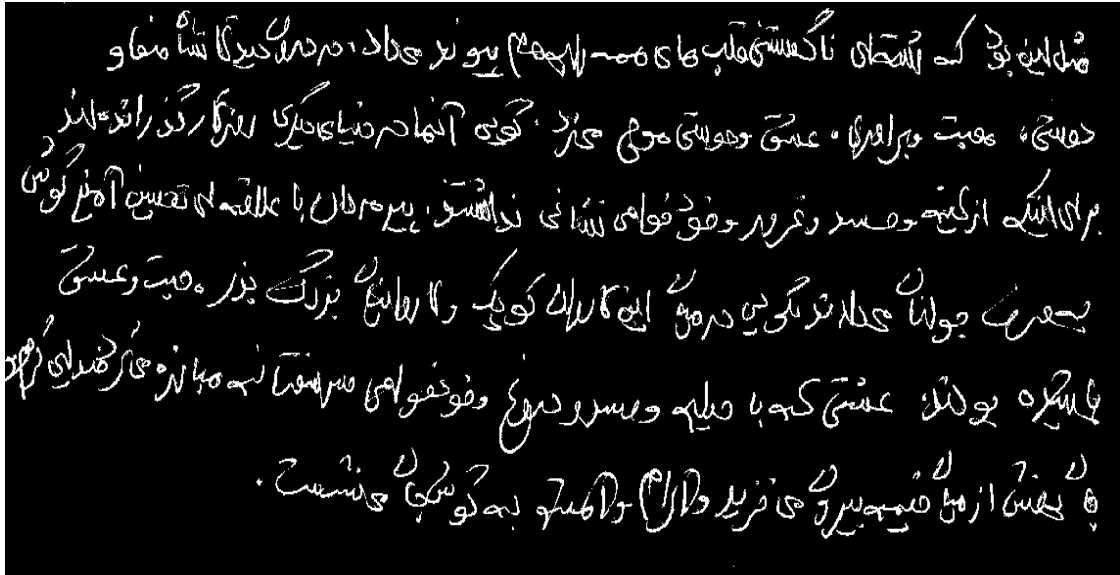 مثل این بود که رشته‌ای ناگسستنی قلب‌های همه را به هم پیوند می‌داد، در درون دیدگانشان صفا و
دوستی، محبت و برادری، عشق و دوستی موج میزد. گویی آنها در دنیای دیگری روزگار گذرانده‌اند
برای اینکه از کینه و حسد و غرور و خودخواهی نشانی نداشتند. پیرمردان با علاقه‌ای تحسین آمیز گوش
به حرف جوانان میدادند گویی در میان این کاروان کوچک و کاروانیان بزرگ بذر محبت و عشق
پاشیده بودند. عشقی که با حیله و حسد و دروغ و خودخواهی سرسختانه مبارزه می‌کرد صدایی گرم
جان بخش از میان خیمه بیرون می خزید و آرام و آهسته به گوش جان می نشست.